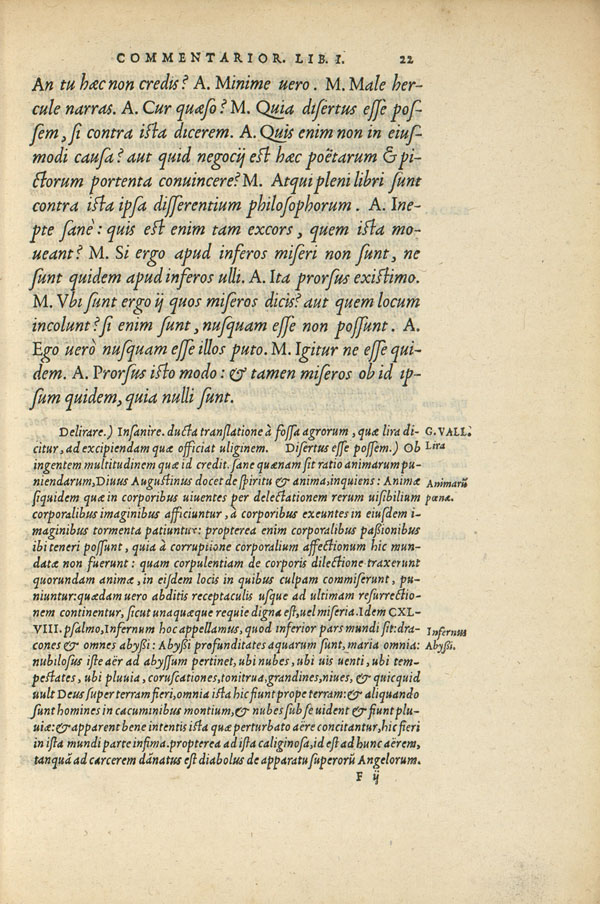 COMMENTARIOR. LIB. I. 22
An tu hæc non credis? A. Minime uero. M. Male her-
cule narras. A. Cur quæso? M. Quia disertus esse pos-
sem, si contra ista dicerem. A. Quis enim non in eius-
modi causa? aut quid negocij est hæc poëtarum & pi-
ctorum portenta conuincere? M. Atqui pleni libri sunt
contra ista ipsa disserentium philosophorum. A. Ine-
pte sanè: quis est enim tam excors, quem ista mo-
ueant? M. Si ergo apud inferos miseri non sunt, ne
sunt quidem apud inferos ulli. A. Ita prorsus existimo.
M. Vbi sunt ergo ij quos miseros dicis? aut quem locum
incolunt? si enim sunt, nusquam esse non possunt. A.
Ego uerò nusquam esse illos puto. M. Igitur ne esse qui-
dem. A. Prorsus isto modo: & tamen miseros ob id ip-
sum quidem, quia nulli sunt.
Delirare.) Insanire. ducta translatione à fossa agrorum, quæ lira di- G. VALL.
citur, ad excipiendam quæ officiat uliginem. Disertus esse possem.) Ob Lira
ingentem multitudinem quæ id credit. sanè quænam sit ratio animarum pu-
niendarum, Diuus Augustinus docet de spiritu & anima, inquiens: Animæ Animarũ
siquidem quæ in corporibus uiuentes per delectationem rerum uisibilium pœnæ.
corporalibus imaginibus afficiuntur, à corporibus exeuntes in eiusdem i-
maginibus tormenta patiuntur: propterea enim corporalibus passionibus
ibi teneri possunt, quia à corruptione corporalium affectionum hic mun-
datæ non fuerunt: quam corpulentiam de corporis dilectione traxerunt
quorundam animæ, in eisdem locis in quibus culpam commiserunt, pu-
niuntur: quædam uero abditis receptaculis usque ad ultimam resurrectio-
nem continentur, sicut unaquæque requie digna est, uel miseria. Idem CXL-
VIII. psalmo, Infernum hoc appellamus, quod inferior pars mundi sit: dra- Infernus
cones & omnes abyssi: Abyssi profunditates aquarum sunt, maria omnia: Abyssi.
nubilosus iste aër ad abyssum pertinet, ubi nubes, ubi uis uenti, ubi tem-
pestates, ubi pluuia, coruscationes, tonitrua, grandines, niues, & quicquid
uult Deus super terram fieri, omnia ista hic fiunt prope terram: & aliquando
sunt homines in cacuminibus montium, & nubes sub se uident & fiunt plu-
uiæ: & apparent bene intentis ista quæ perturbato aëre concitantur, hic fieri
in ista mundi parte infima. propterea ad ista caliginosa, id est ad hunc aërem,
tanquã ad carcerem dãnatus est diabolus de apparatu superorũ Angelorum.
F ij